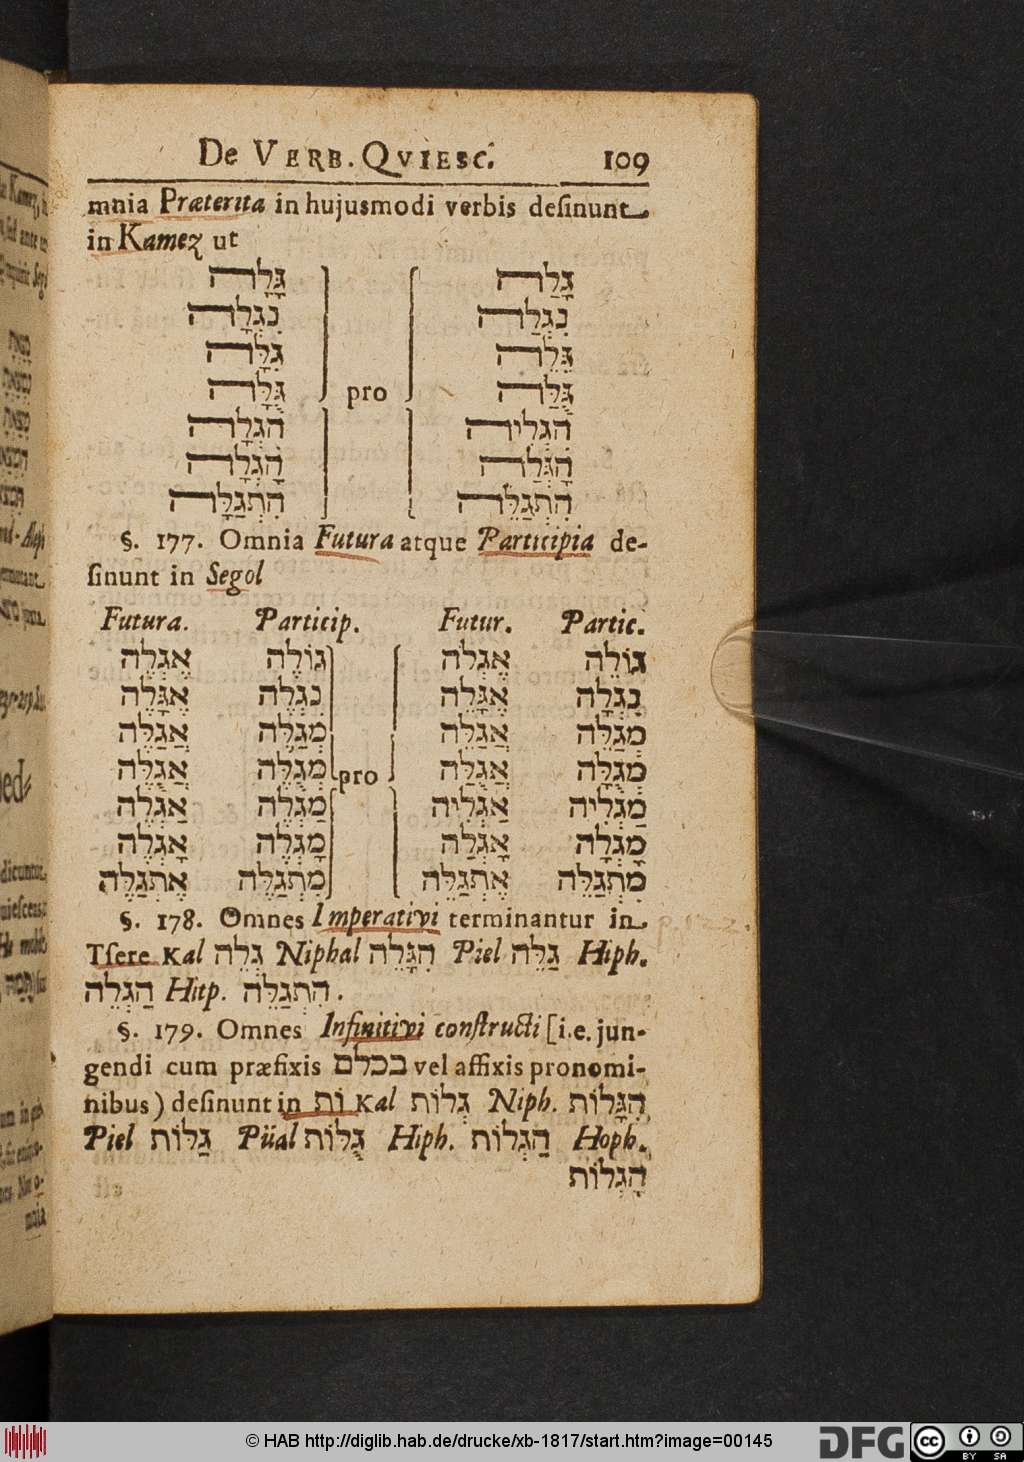 De VERB. QVIESC. 109
mnia Præterita in hujusmodi verbis desinunt
in Kamez ut
גָּלָה גָּלַה
נִגְלָה נִגְלַה
גִּלָּה גִּלֵּה
גֻּלָּה pro גֻּלַּה
הִגְלָה הִגְלִיה
הָגְלָה הָגְלַה
הִתְגַּלָּה הִתְגַּלֵּה
§. 177. Omnia Futura atque Participia de-
sinunt in Segol
Futura. Particip. Futur. Partic.
אֶגְלֶה גוֹלֶה אֶגְלֹה גוֹלֵה
אֶגָּלֶה נִגְלֶה אֶגָּלֵה נִגְלָה
אֲגַלֶּה מְגַלֶּה אֲגַלֵּה מְגַלֵּה
אֲגֻלֶּה מְגֻלֶּה pro אֲגֻלַּה מְגֻלָּה
אַגְלֶה מַגְלֶה אַגְלִיה מַגְלִיה
אָגְלֶה מָגְלֶה אָגְלַה מָגְלָה
אֶתְגַּלֶּה מִתְגַּלֶּה אֶתְגַּלֵּה מִתְגַּלֵּה
§. 178. Omnes Imperativi terminantur in
Tsere Kal גְלֵה Niphal הִגָּלֵה Piel גַּלֵּה Hiph.
הַגְלֵה Hitp. הִתְגַּלֵּה.
§. 179. Omnes Infinitivi constructi [i.e. jun-
gendi cum præfixis בכלם vel affixis pronomi-
nibus) desinunt in וֹת Kal גְלוֹת Niph. הִגָּלוֹת
Piel גַּלּוֹת Püal גֻּלּוֹת Hiph. הַגְלוֹת Hoph.
הָגְלוֹת
© HAB http://diglib.hab.de/drucke/xb-1817/start.htm?image=00145
DFG
cc BY SA